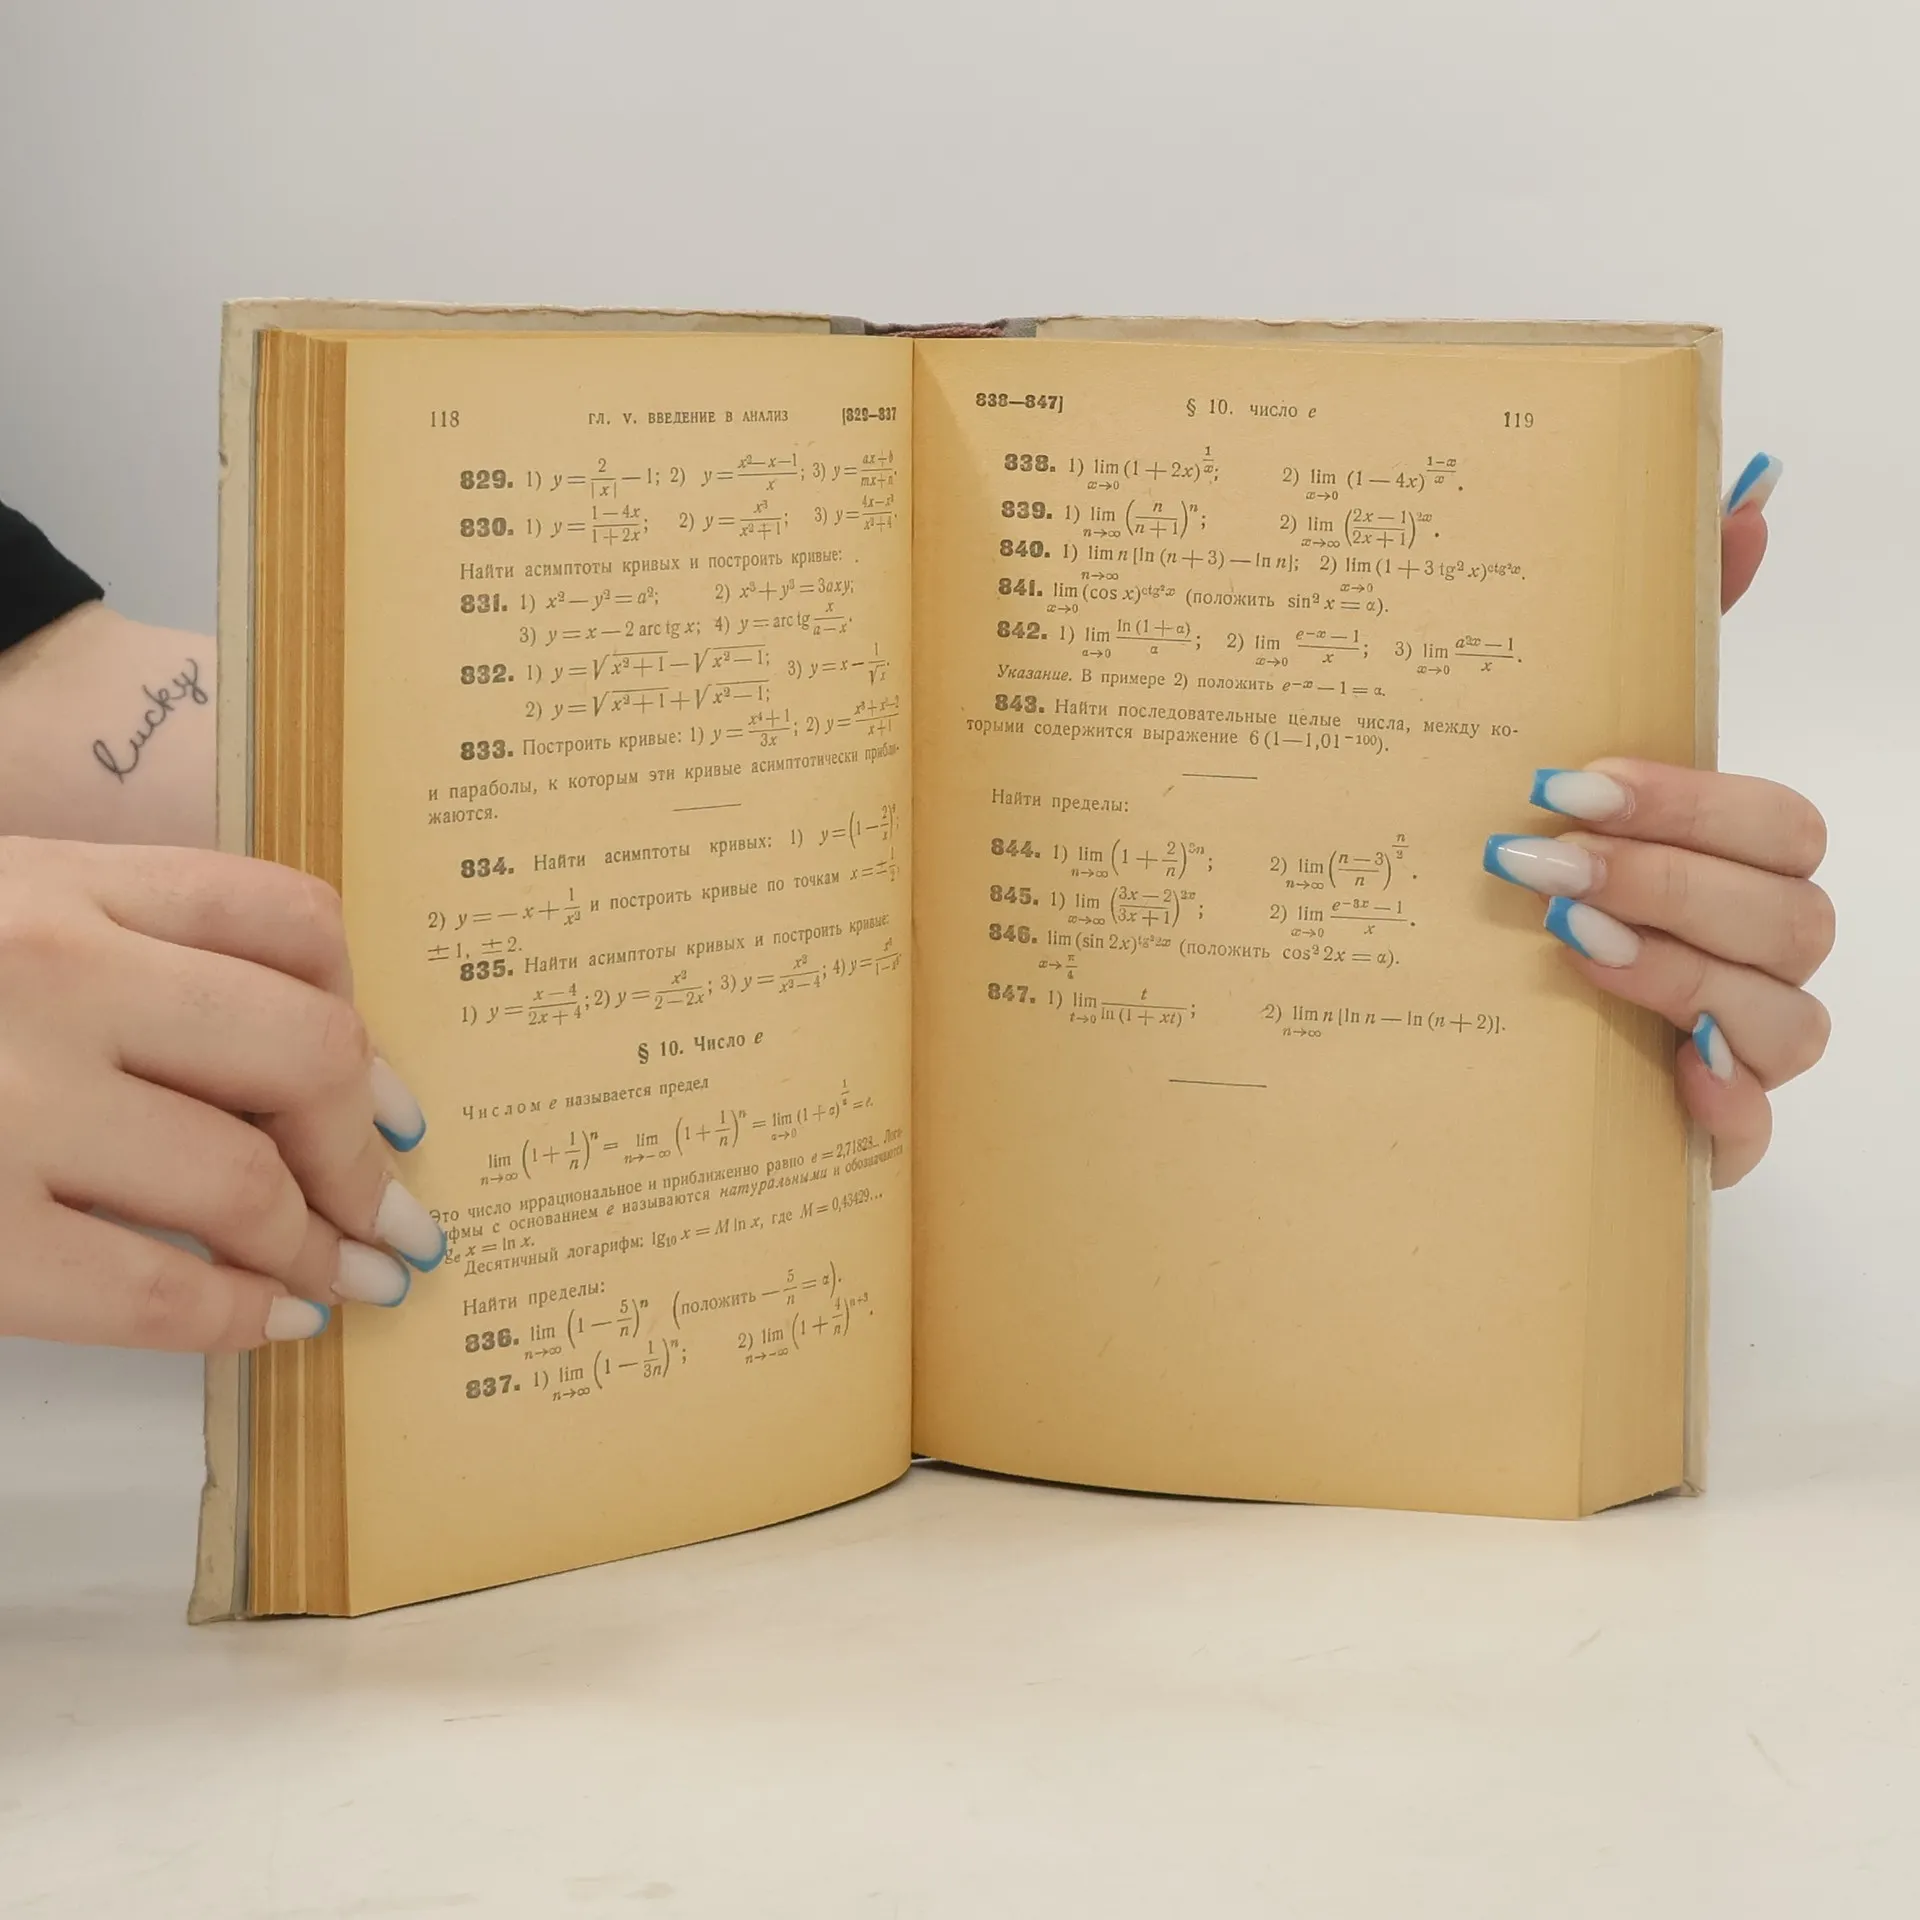 lucky
118 ГЛ. V. ВВЕДЕНИЕ В АНАЛИЗ [829—837
829. 1) y = 2/|x| — 1; 2) y = (x² — x — 1)/x; 3) y = (ax + b)/(mx + n).
830. 1) y = (1 — 4x)/(1 + 2x); 2) y = x³/(x² + 1); 3) y = (4x — x³)/(x² + 4).
Найти асимптоты кривых и построить кривые:
831. 1) x² — y² = a²; 2) x³ + y³ = 3axy;
3) y = x — 2 arc tg x; 4) y = arc tg x/(a — x).
832. 1) y = √(x² + 1) — √(x² — 1); 3) y = x — 1/√x.
2) y = √(x² + 1) + √(x² — 1);
833. Построить кривые: 1) y = (x⁴ + 1)/3x; 2) y = (x³ + x² — 2)/(x + 1)
и параболы, к которым эти кривые асимптотически прибли-
жаются.
834. Найти асимптоты кривых: 1) y = (1 — 2/x)²;
2) y = — x + 1/x² и построить кривые по точкам x = ± 1/2,
± 1, ± 2.
835. Найти асимптоты кривых и построить кривые:
1) y = (x — 4)/(2x + 4); 2) y = x²/(2 — 2x); 3) y = x²/(x² — 4); 4) y =
§ 10. Число e
Числом e называется предел
lim n→∞ (1 + 1/n)ⁿ = lim n→—∞ (1 + 1/n)ⁿ = lim α→0 (1 + α)^(1/α) = e.
Это число иррациональное и приближенно равно e = 2,71828... Лога-
ифмы с основанием e называются натуральными и обозначаются
gₑ x = ln x.
Десятичный логарифм: lg₁₀ x = M ln x, где M = 0,43429...
Найти пределы:
836. lim n→∞ (1 — 5/n)ⁿ (положить — 5/n = α).
837. 1) lim n→∞ (1 — 1/3n)ⁿ; 2) lim n→—∞ (1 + 4/n)ⁿ⁺³.
838—847] § 10. ЧИСЛО e 119
838. 1) lim x→0 (1 + 2x)^(1/x); 2) lim x→0 (1 — 4x)^((1—x)/x).
839. 1) lim n→∞ (n/(n + 1))ⁿ; 2) lim x→∞ ((2x — 1)/(2x + 1))²ˣ.
840. 1) lim n→∞ n [ln (n + 3) — ln n]; 2) lim x→0 (1 + 3 tg² x)^(ctg² x).
841. lim x→0 (cos x)^(ctg² x) (положить sin² x = α).
842. 1) lim α→0 ln (1 + α)/α; 2) lim x→0 (e⁻ˣ — 1)/x; 3) lim x→0 (a²ˣ — 1)/x.
Указание. В примере 2) положить e⁻ˣ — 1 = α.
843. Найти последовательные целые числа, между ко-
торыми содержится выражение 6 (1 — 1,01⁻¹⁰⁰).
Найти пределы:
844. 1) lim n→∞ (1 + 2/n)³ⁿ; 2) lim n→∞ ((n — 3)/n)^(n/2).
845. 1) lim x→∞ ((3x — 2)/(3x + 1))²ˣ; 2) lim x→0 (e⁻³ˣ — 1)/x.
846. lim x→π/4 (sin 2x)^(tg² 2x) (положить cos² 2x = α).
847. 1) lim t→0 t/ln (1 + xt); 2) lim n→∞ n [ln n — ln (n + 2)].